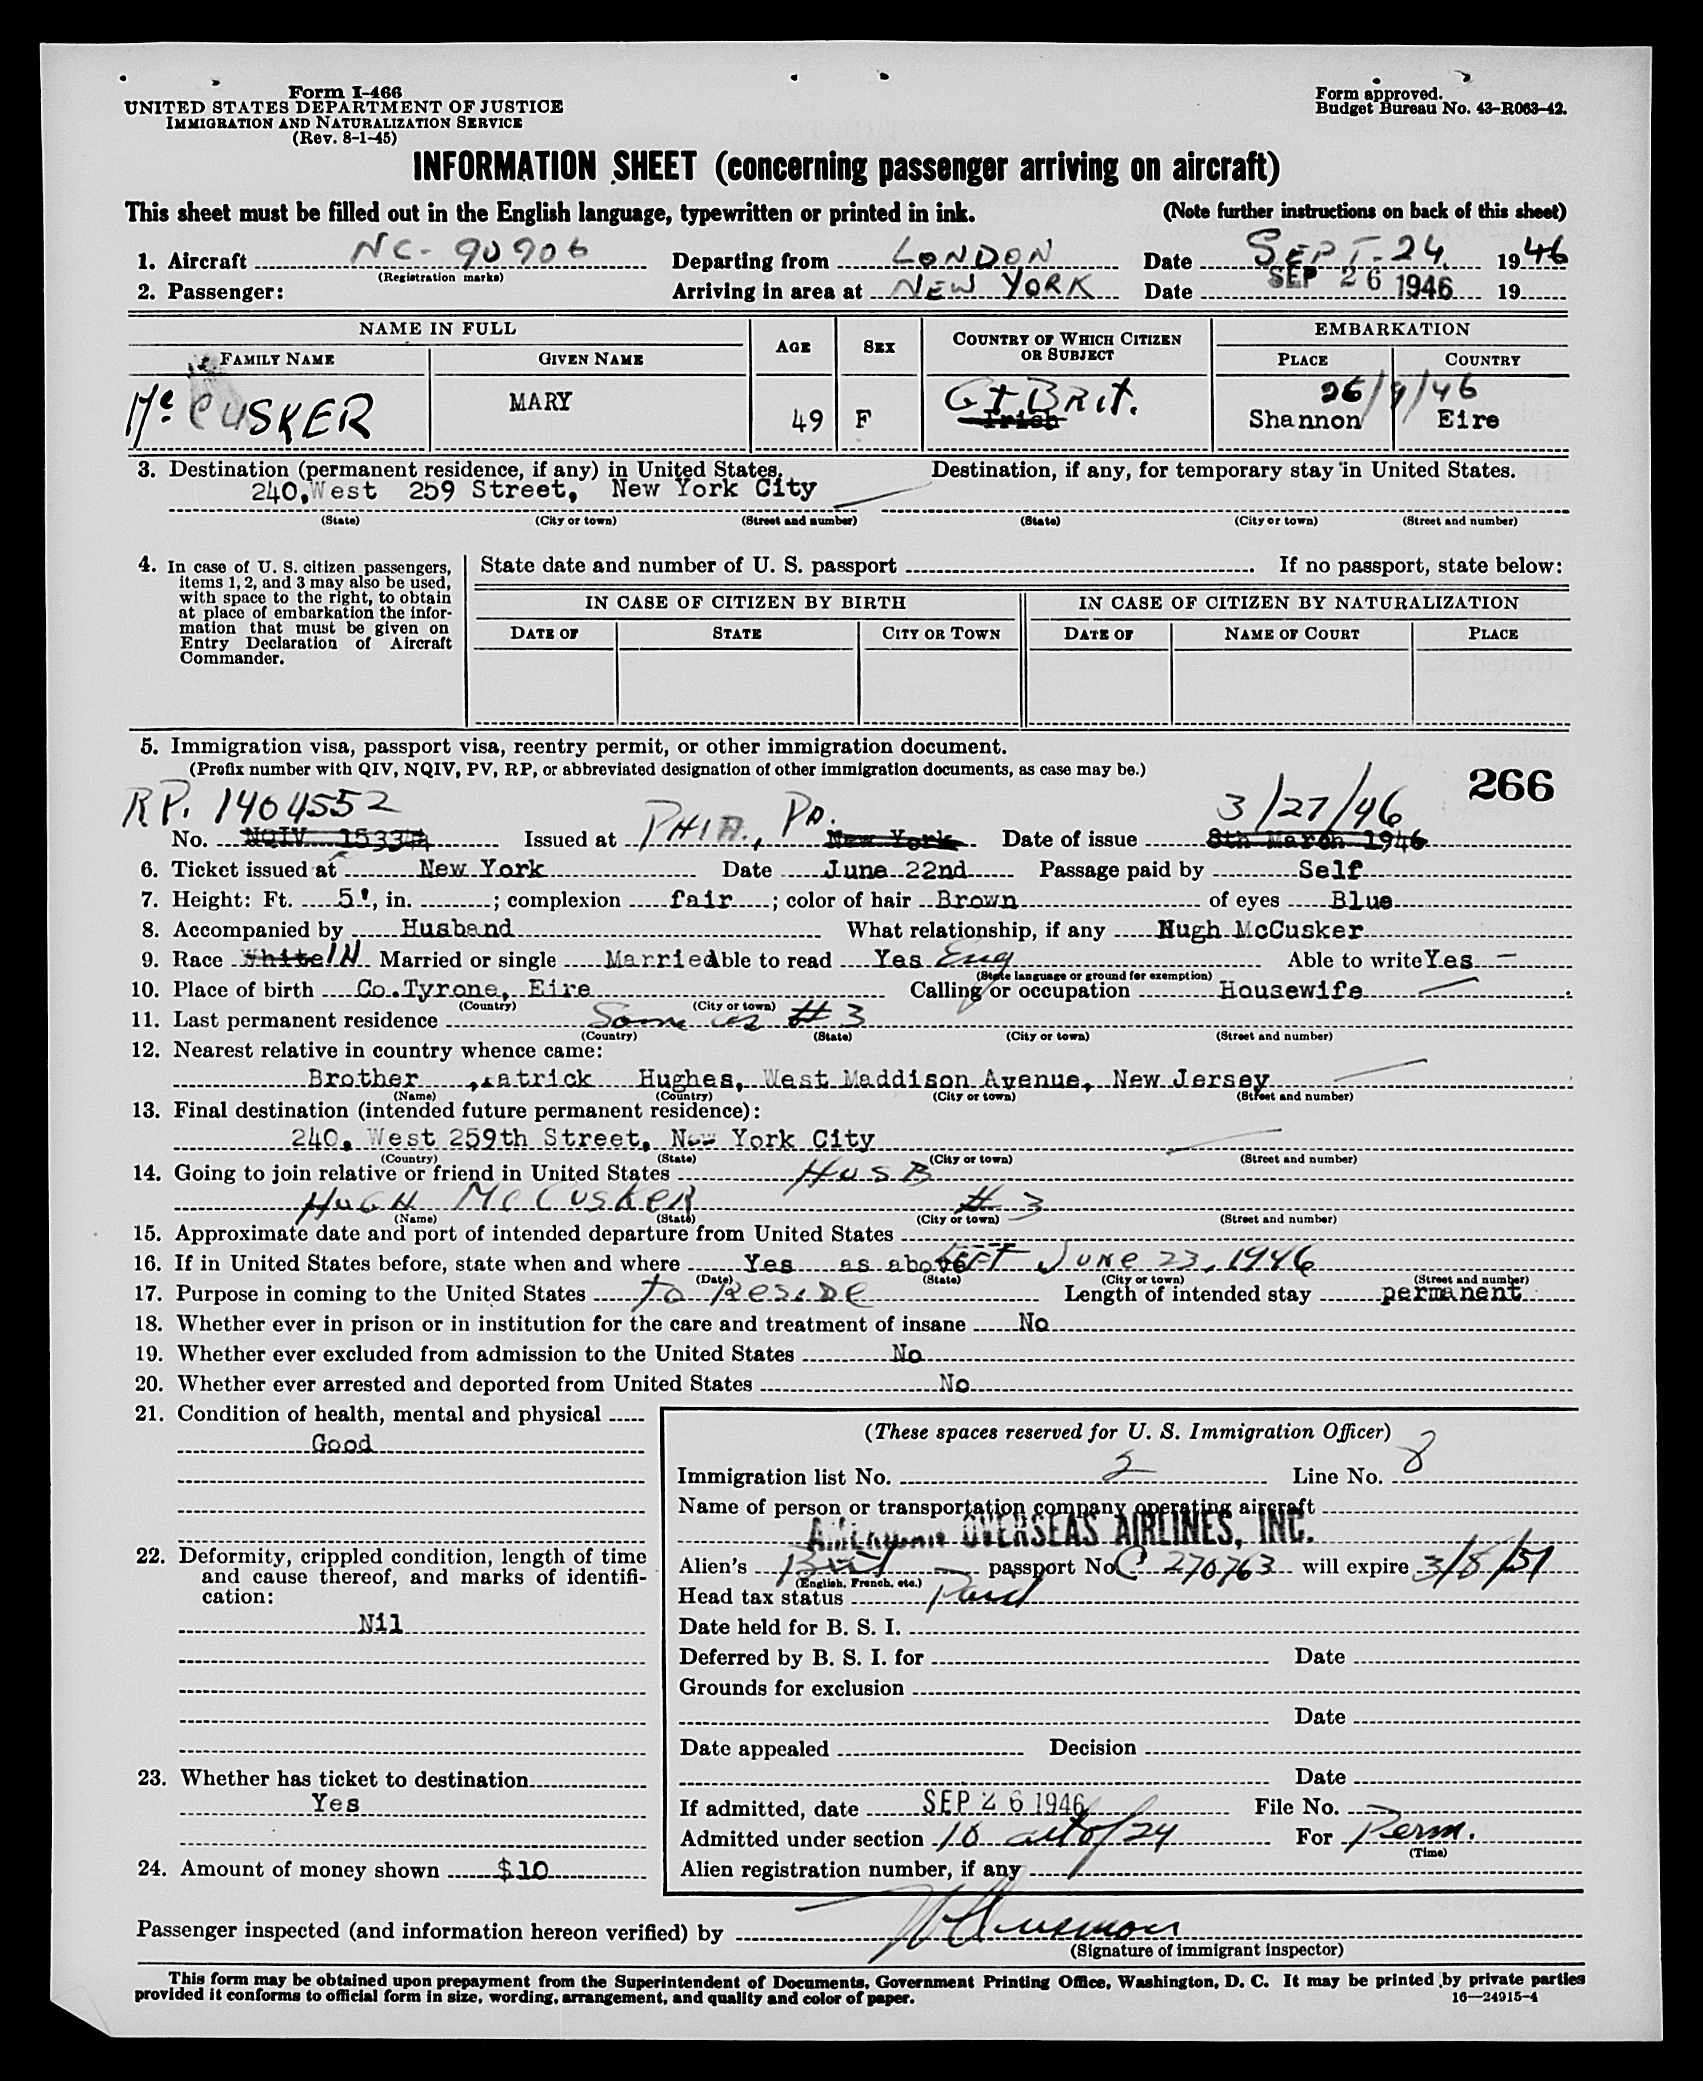 Form I-466
UNITED STATES DEPARTMENT OF JUSTICE
IMMIGRATION AND NATURALIZATION SERVICE
(Rev. 8-1-45)
Form approved.
Budget Bureau No. 43-R063-42.
INFORMATION SHEET (concerning passenger arriving on aircraft)
This sheet must be filled out in the English language, typewritten or printed in ink. (Note further instructions on back of this sheet)
1. Aircraft NC-90906 Departing from LONDON Date SEPT. 24 1946
(Registration marks)
2. Passenger: Arriving in area at NEW YORK Date SEP 26 1946 19
NAME IN FULL AGE SEX COUNTRY OF WHICH CITIZEN OR SUBJECT EMBARKATION
FAMILY NAME GIVEN NAME PLACE COUNTRY
26/9/46
Mc CUSKER MARY 49 F Gt BRit. Irish Shannon Eire
3. Destination (permanent residence, if any) in United States. Destination, if any, for temporary stay in United States.
240, West 259 Street, New York City
(State) (City or town) (Street and number) (State) (City or town) (Street and number)
4. In case of U. S. citizen passengers, items 1, 2, and 3 may also be used, with space to the right, to obtain at place of embarkation the information that must be given on Entry Declaration of Aircraft Commander.
State date and number of U. S. passport If no passport, state below:
IN CASE OF CITIZEN BY BIRTH IN CASE OF CITIZEN BY NATURALIZATION
DATE OF STATE CITY OR TOWN DATE OF NAME OF COURT PLACE
5. Immigration visa, passport visa, reentry permit, or other immigration document.
(Prefix number with QIV, NQIV, PV, RP, or abbreviated designation of other immigration documents, as case may be.)
266
RP. 1404552 PHILA., PA. 3/27/46
No. NQIV Issued at New York Date of issue 8th March 1946
6. Ticket issued at New York Date June 22nd Passage paid by Self
7. Height: Ft. 5', in. ; complexion fair ; color of hair Brown of eyes Blue
8. Accompanied by Husband What relationship, if any Hugh McCusker
9. Race White IN Married or single Married Able to read Yes Eng Able to write Yes
(State language or ground for exemption)
10. Place of birth Co.Tyrone, Eire Calling or occupation Housewife
(Country) (City or town)
11. Last permanent residence Same as #3
(Country) (State) (City or town) (Street and number)
12. Nearest relative in country whence came:
Brother ,Patrick Hughes, West Maddison Avenue, New Jersey
(Name) (Country) (City or town) (Street and number)
13. Final destination (intended future permanent residence):
240, West 259th Street, New York City
(Country) (State) (City or town) (Street and number)
14. Going to join relative or friend in United States HUSB
HUGH MCCUSKER #3
(Name) (State) (City or town) (Street and number)
15. Approximate date and port of intended departure from United States
16. If in United States before, state when and where Yes as above LEFT JUNE 23, 1946
(Date) (State) (City or town) (Street and number)
17. Purpose in coming to the United States To Reside Length of intended stay permanent
18. Whether ever in prison or in institution for the care and treatment of insane No
19. Whether ever excluded from admission to the United States No
20. Whether ever arrested and deported from United States No
21. Condition of health, mental and physical
Good
22. Deformity, crippled condition, length of time and cause thereof, and marks of identification:
Nil
23. Whether has ticket to destination
Yes
24. Amount of money shown $10
(These spaces reserved for U. S. Immigration Officer)
Immigration list No. 2 Line No. 8
Name of person or transportation company operating aircraft
AMERICAN OVERSEAS AIRLINES, INC.
Alien's Brit passport No. C 270763 will expire 3/8/51
(English, French, etc.)
Head tax status Paid
Date held for B. S. I.
Deferred by B. S. I. for Date
Grounds for exclusion
Date
Date appealed Decision
Date
If admitted, date SEP 26 1946 File No.
Admitted under section 10 act of 24 For Perm.
(Time)
Alien registration number, if any
Passenger inspected (and information hereon verified) by
(Signature of immigrant inspector)
This form may be obtained upon prepayment from the Superintendent of Documents, Government Printing Office, Washington, D. C. It may be printed by private parties
provided it conforms to official form in size, wording, arrangement, and quality and color of paper.
16—24915-4